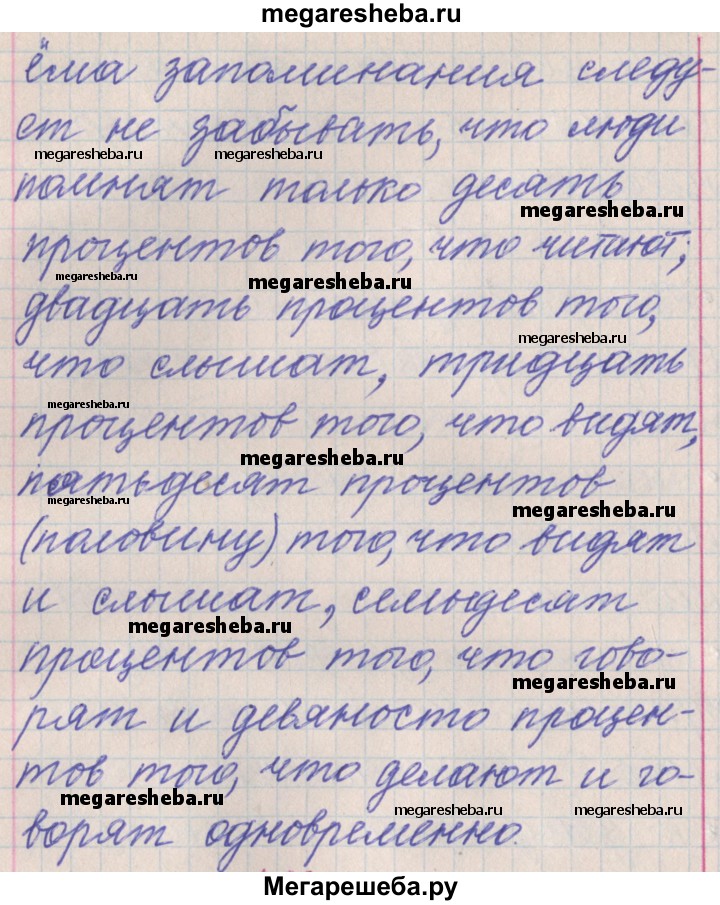 megaresheba.ru
ёма запоминания следу-
ет не забывать, что люди
megaresheba.ru megaresheba.ru
помнят только десять
megaresheba.ru
процентов того, что читают;
megaresheba.ru megaresheba.ru
двадцать процентов того,
megaresheba.ru
что слышат, тридцать
megaresheba.ru
процентов того, что видят,
megaresheba.ru
пятьдесят процентов
megaresheba.ru megaresheba.ru
(половину) того, что видят
и слышат, семьдесят
megaresheba.ru
процентов того, что гово-
megaresheba.ru
рят и девяносто процен-
тов того, что делают и го-
megaresheba.ru megaresheba.ru megaresheba.ru
ворят одновременно.
Мегарешеба.ру